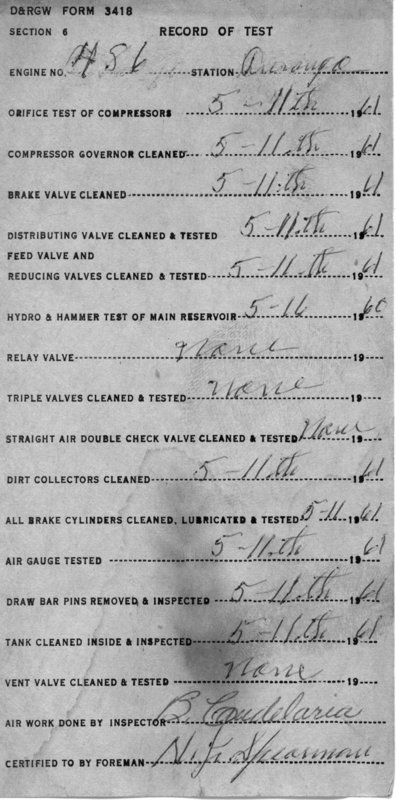 D&RGW FORM 3418
SECTION 6 RECORD OF TEST
ENGINE NO. 486 STATION Durango
ORIFICE TEST OF COMPRESSORS 5-11.th 1961
COMPRESSOR GOVERNOR CLEANED 5-11.th 1961
BRAKE VALVE CLEANED 5-11.th 1961
DISTRIBUTING VALVE CLEANED & TESTED 5-11.th 1961
FEED VALVE AND
REDUCING VALVES CLEANED & TESTED 5-11.th 1961
HYDRO & HAMMER TEST OF MAIN RESERVOIR 5-16 1960
RELAY VALVE None 19
TRIPLE VALVES CLEANED & TESTED None 19
STRAIGHT AIR DOUBLE CHECK VALVE CLEANED & TESTED None 19
DIRT COLLECTORS CLEANED 5-11.th 1961
ALL BRAKE CYLINDERS CLEANED, LUBRICATED & TESTED 5-11 1961
AIR GAUGE TESTED 5-11.th 1961
DRAW BAR PINS REMOVED & INSPECTED 5-11.th 1961
TANK CLEANED INSIDE & INSPECTED 5-11.th 1961
VENT VALVE CLEANED & TESTED None 19
AIR WORK DONE BY INSPECTOR B. Candelaria
CERTIFIED TO BY FOREMAN